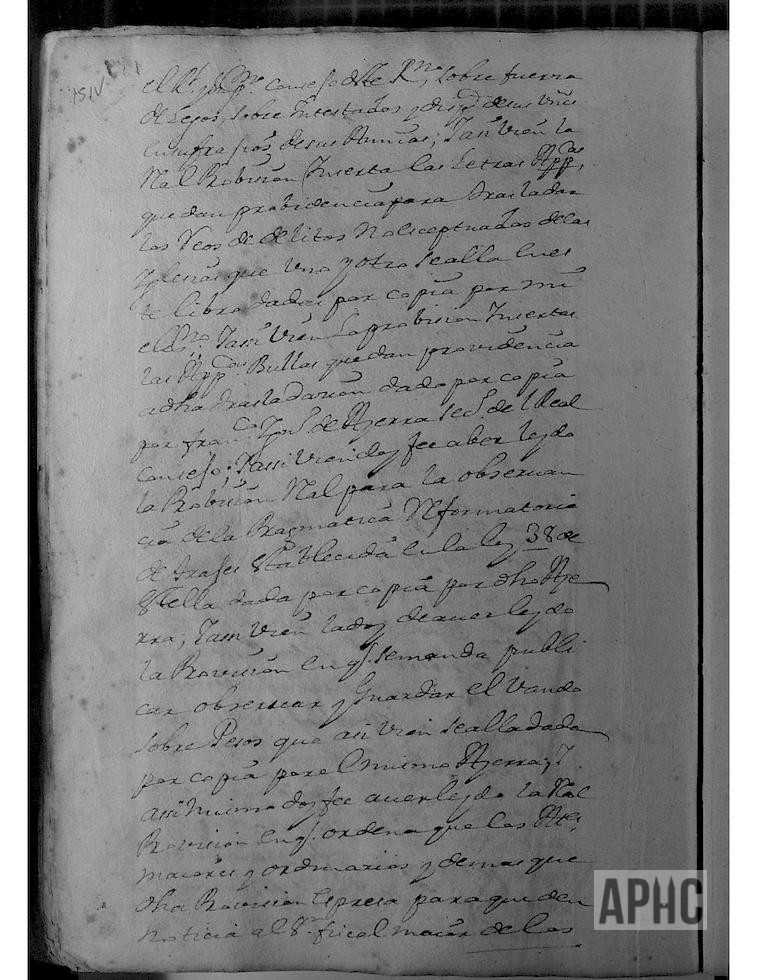 151v 151
el Rl. y Supmo. Consejo de este Rno. sobre fuerza
de Legos, sobre Intestados y de sus vienes
en sufragios de sus Animas; Tamvien la
Real Probision Inserta las Letras Appcas.
que dan probidencia para trasladar
los Reos de delitos No esceptuados de las
Iglesias que uno y otro se alla en es
te libro dadas por copia por mi
el Esno. Tamvien La probision Insertas
las Appcas. Bullas que dan providencia
a dha trasladacion dada por copia
por franco. de Ayerra sec. de el Real
Consejo; Y assi vien doy fee aber leydo
la Probision Real para la observan
cia de la Pragmatica Reformatoria
de trajes Establecida en la ley 38 de
Estella dada por copia por dho Aye
rra; Tamvien la doy de aver leydo
la Provision en q. se manda publi
car observar y Guardar el Vando
sobre Pesos que assi vien se alla dada
por copia por el mismo Ayerra; Y
assi mismo doy fee aver leydo la Real
Provision en q. ordena que los Altes.
maiores y ordinarios y demas que
dha Provision Espresa para que den
noticia al Sr. fiscal maior de los
APHC